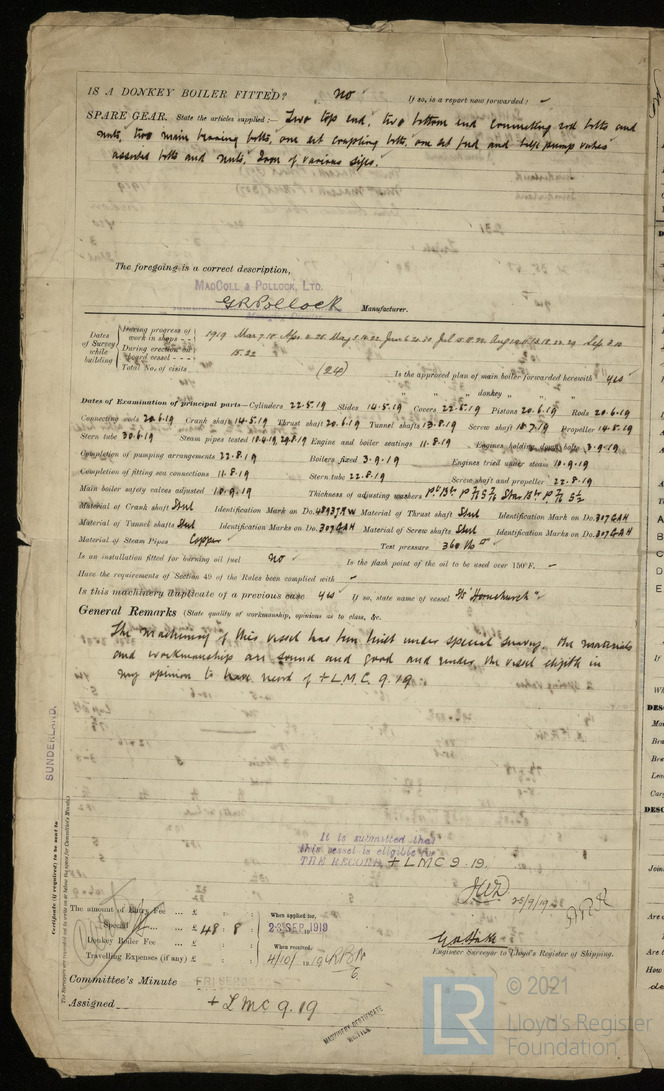 IS A DONKEY BOILER FITTED? no If so, is a report now forwarded? -
SPARE GEAR. State the articles supplied:— Two top end, two bottom end connecting rod bolts and
nuts, two main bearing bolts, one set coupling bolts, one set feed and bilge pump valves
assorted bolts and nuts, Iron of various sizes.
The foregoing is a correct description,
MacColl & Pollock, Ltd.
G R Pollock Manufacturer.
Dates of Survey while building
During progress of work in shops - - 1919 Mar 7. 18 Apr 2. 25 May 5. 14. 22 Jun 6. 20. 30 Jul 15. 18. 22 Aug Sep 3. 10
During erection on board vessel - - - 15. 22
Total No. of visits (24) Is the approved plan of main boiler forwarded herewith yes
" " " donkey " " "
Dates of Examination of principal parts—Cylinders 22.5.19 Slides 14.5.19 Covers 22.5.19 Pistons 20.6.19 Rods 20.6.19
Connecting rods 20.6.19 Crank shaft 14.5.19 Thrust shaft 20.6.19 Tunnel shafts 13.8.19 Screw shaft 18.7.19 Propeller 14.8.19
Stern tube 30.6.19 Steam pipes tested 18.4.19, 29.8.19 Engine and boiler seatings 11.8.19 Engines holding down bolts 3.9.19
Completion of pumping arrangements 22.8.19 Boilers fixed 3.9.19 Engines tried under steam 10.9.19
Completion of fitting sea connections 11.8.19 Stern tube 22.8.19 Screw shaft and propeller 22.8.19
Main boiler safety valves adjusted 10.9.19 Thickness of adjusting washers
Material of Crank shaft Steel Identification Mark on Do. 48937RW Material of Thrust shaft Steel Identification Mark on Do. 307GAH
Material of Tunnel shafts Steel Identification Marks on Do. 307GAH Material of Screw shafts Steel Identification Marks on Do. 307GAH
Material of Steam Pipes Copper Test pressure 360 lbs □"
Is an installation fitted for burning oil fuel no Is the flash point of the oil to be used over 150°F. -
Have the requirements of Section 49 of the Rules been complied with -
Is this machinery duplicate of a previous case yes If so, state name of vessel "Hornchurch"
General Remarks (State quality of workmanship, opinions as to class, &c.
The machinery of this vessel has been built under special survey. The materials
and workmanship are sound and good and render the vessel eligible in
my opinion to have record of + L.M.C. 9.19
SUNDERLAND.
Certificate (if required) to be sent to
(The Surveyors are requested not to write on or below the space for Committee's Minute.)
It is submitted that
this vessel is eligible for
THE RECORD. + LMC 9.19.
25/9/19
The amount of Entry Fee ... £ : : When applied for,
Special ... £ 48 : 8 : 23 SEP. 1919
Donkey Boiler Fee ... £ : : When received,
Travelling Expenses (if any) £ : : 4/10/1919
Engineer Surveyor to Lloyd's Register of Shipping.
Committee's Minute FRI
Assigned + LMC 9.19
MACHINERY CERTIFICATE
WRITTEN
LR
© 2021
Lloyd's Register
Foundation